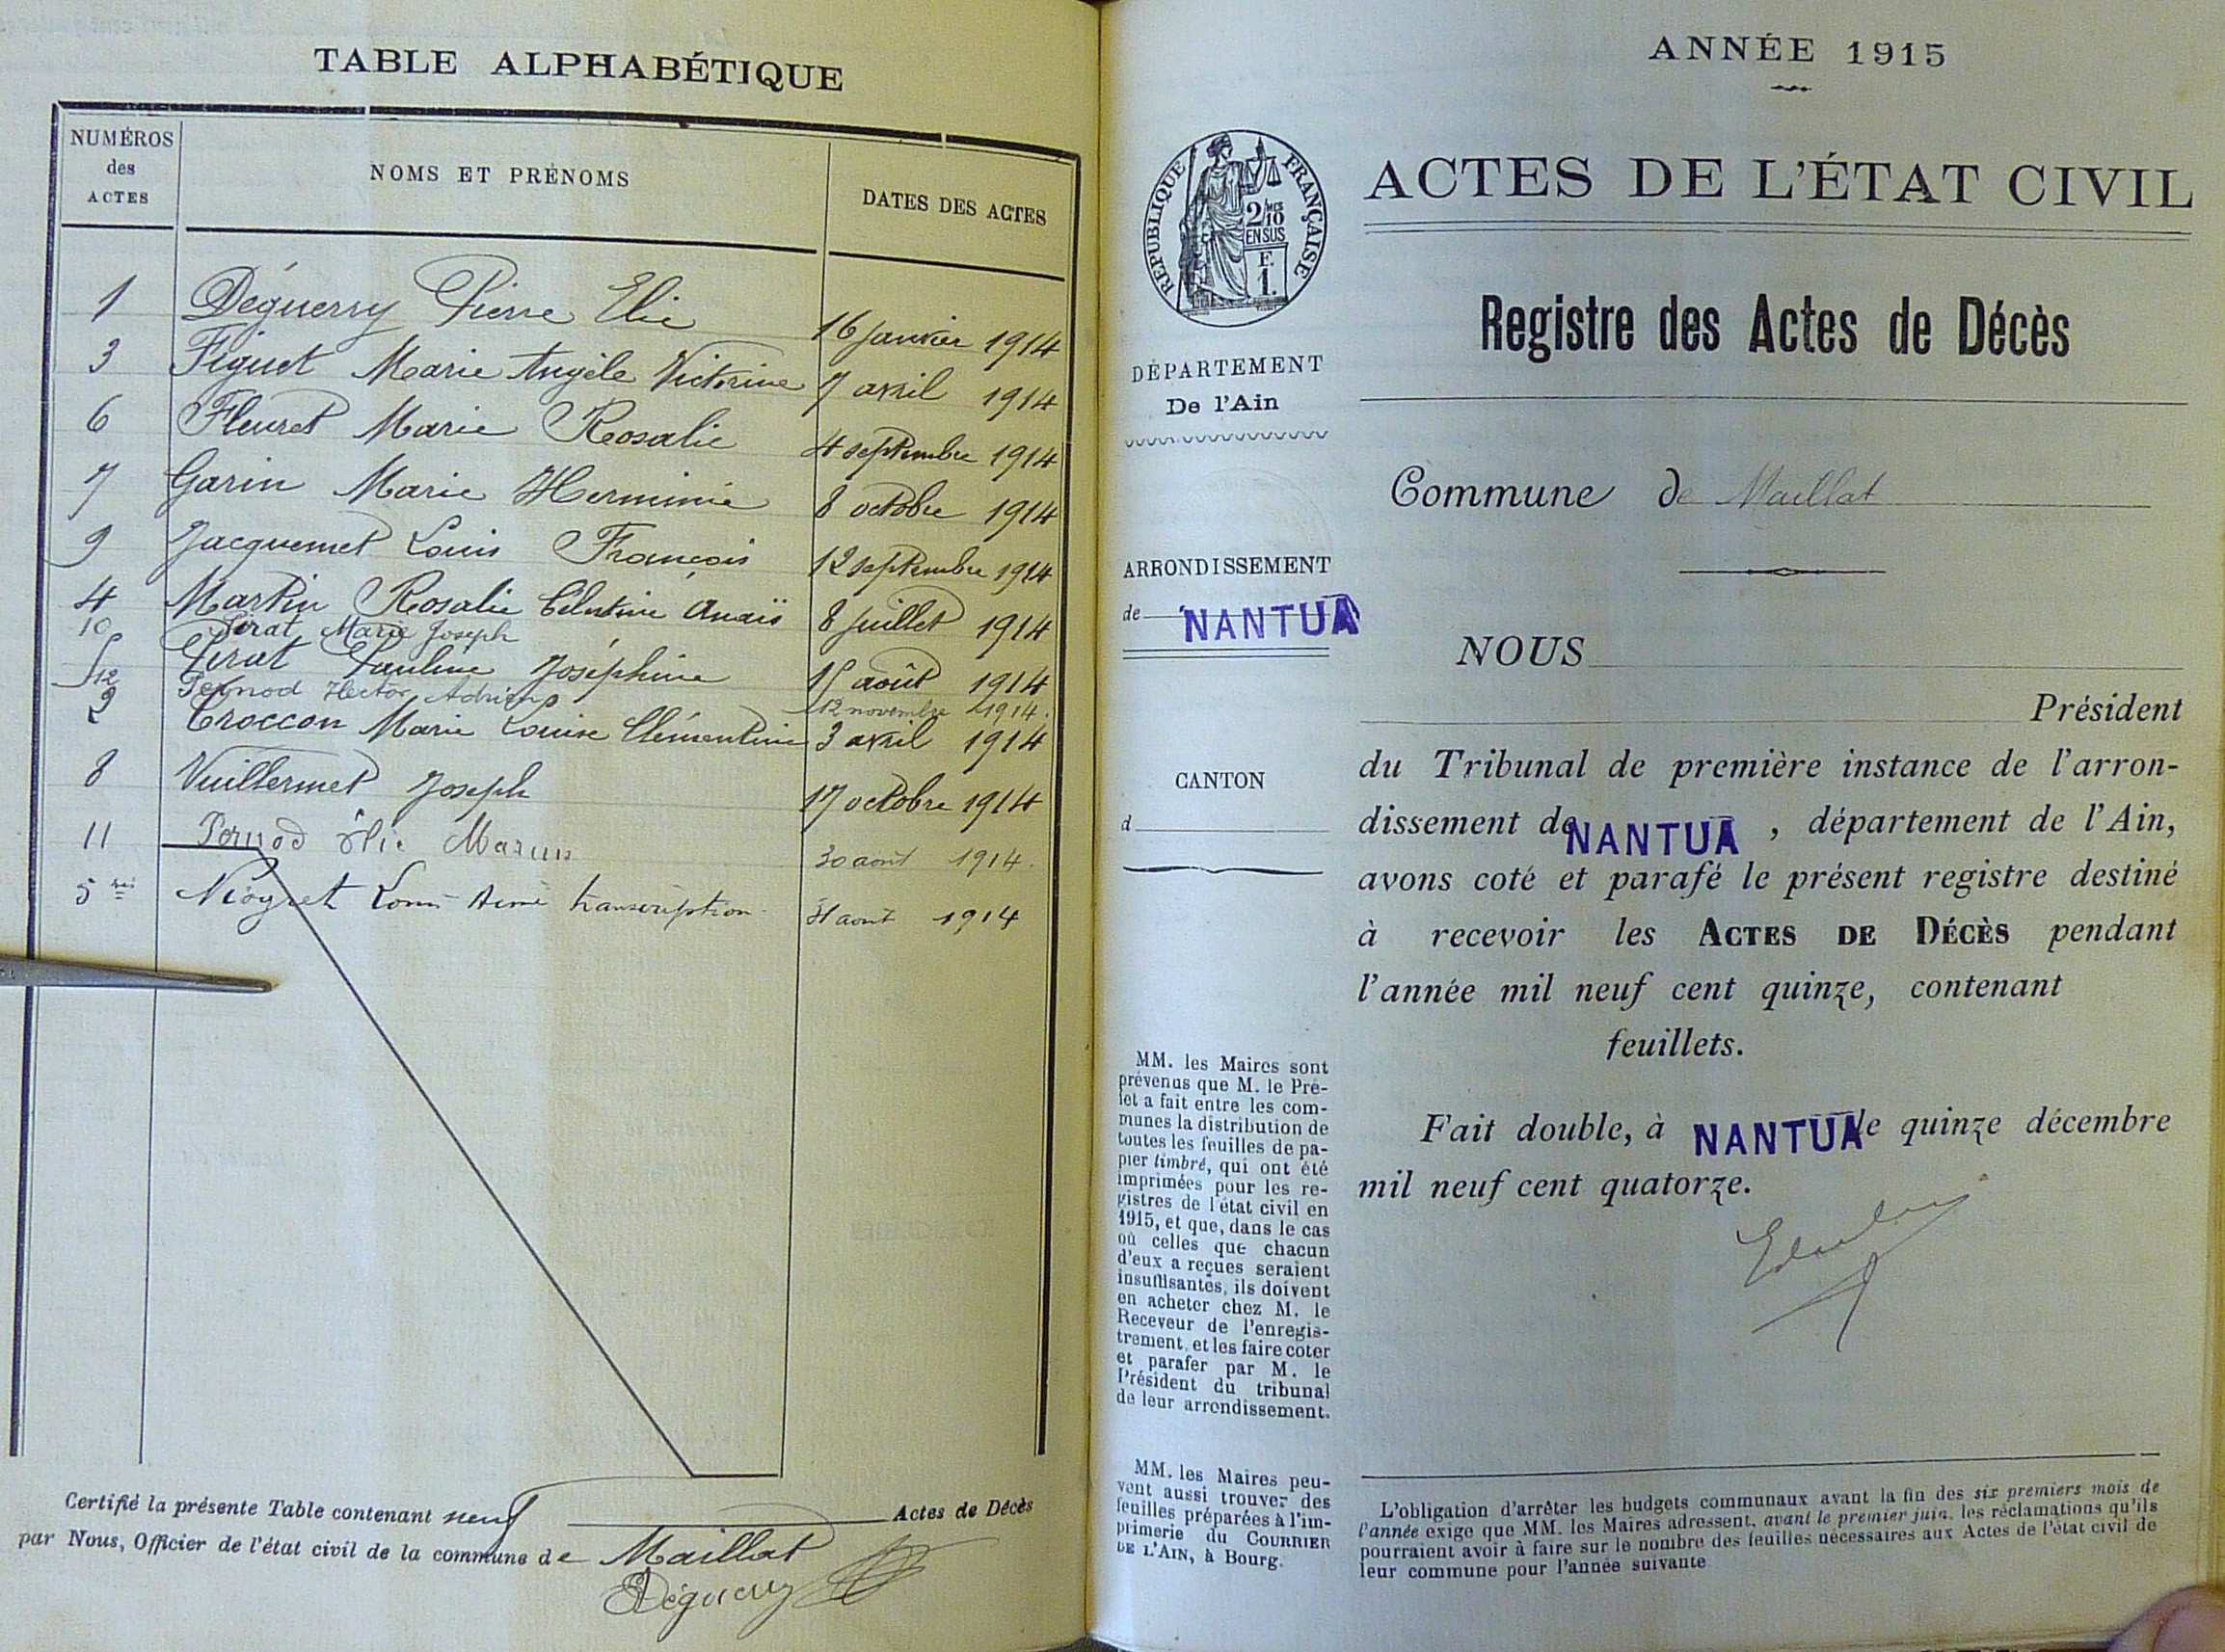 TABLE ALPHABÉTIQUE
NUMÉROS des ACTES
NOMS ET PRÉNOMS
DATES DES ACTES
1 Déguerry Pierre Elie 16 janvier 1914
3 Figuet Marie Angèle Victorine 7 avril 1914
6 Fleuret Marie Rosalie 4 septembre 1914
7 Garin Marie Herminie 8 octobre 1914
9 Jacquemet Louis François 12 septembre 1914
4 Martin Rosalie Célestine Anaïs 8 juillet 1914
10 Pirat Marie Joseph
5 Pirat Pauline Joséphine 15 août 1914
12 Pernod Hector Adrien 12 novembre 1914.
2 Troccon Marie Louise Clémentine 3 avril 1914
8 Vuillermet Joseph 17 octobre 1914
11 Pernod Elie Marius 30 août 1914.
5 bis Louis Aimé transcription 31 août 1914
Certifié la présente Table contenant neuf Actes de Décès
par Nous, Officier de l'état civil de la commune de Maillat
Déguerry
ANNÉE 1915
RÉPUBLIQUE FRANÇAISE
2/10
EN SUS
F.
1.
ACTES DE L'ÉTAT CIVIL
Registre des Actes de Décès
DÉPARTEMENT
De l'Ain
Commune de Maillat
ARRONDISSEMENT
de NANTUA
CANTON
d
NOUS
Président
du Tribunal de première instance de l'arron-
dissement de NANTUA , département de l'Ain,
avons coté et parafé le présent registre destiné
à recevoir les ACTES DE DÉCÈS pendant
l'année mil neuf cent quinze, contenant
feuillets.
Fait double, à NANTUA le quinze décembre
mil neuf cent quatorze.
MM. les Maires sont
prévenus que M. le Pré-
fet a fait entre les com-
munes la distribution de
toutes les feuilles de pa-
pier timbré, qui ont été
imprimées pour les re-
gistres de l'état civil en
1915, et que, dans le cas
où celles que chacun
d'eux a reçues seraient
insuffisantes, ils doivent
en acheter chez M. le
Receveur de l'enregis-
trement, et les faire coter
et parafer par M. le
Président du tribunal
de leur arrondissement.
MM. les Maires peu-
vent aussi trouver des
feuilles préparées à l'im-
primerie du COURRIER
DE L'AIN, à Bourg.
L'obligation d'arrêter les budgets communaux avant la fin des six premiers mois de
l'année exige que MM. les Maires adressent, avant le premier juin, les réclamations qu'ils
pourraient avoir à faire sur le nombre des feuilles nécessaires aux Actes de l'état civil de
leur commune pour l'année suivante